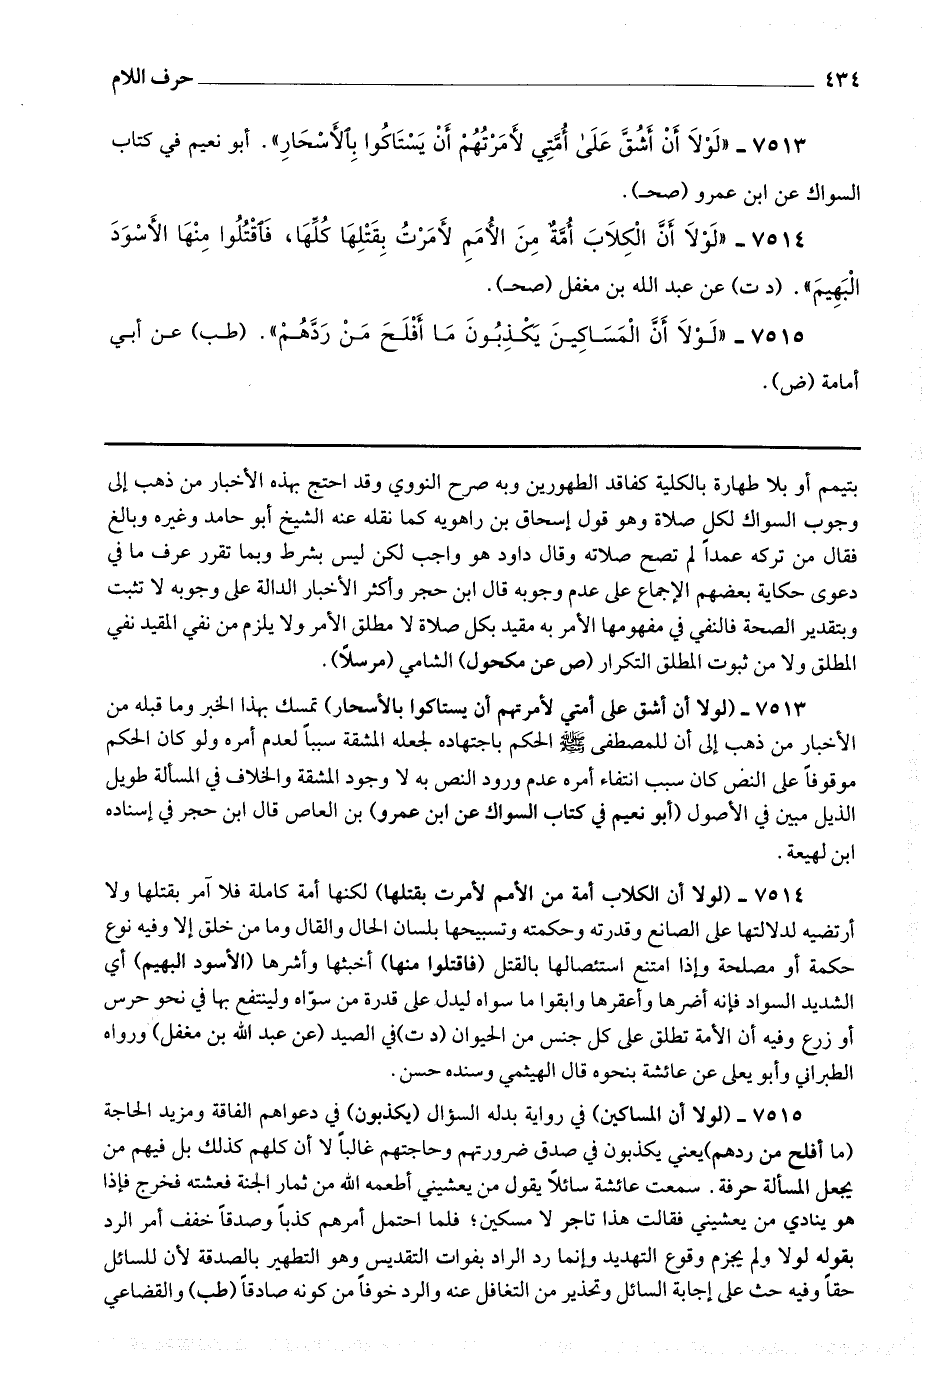 ٤٣٤ حرف اللام
٧٥١٣ ـ «لَوْلَا أَنْ أَشُقَّ عَلَىٰ أُمَّتِي لأَمَرْتُهُمْ أَنْ يَسْتَاكُوا بِٱلأَسْحَارِ». أبو نعيم في كتاب
السواك عن ابن عمرو (صحـ).
٧٥١٤ ـ «لَوْلَا أَنَّ الْكِلَابَ أُمَّةٌ مِنَ الأُمَمِ لأَمَرْتُ بِقَتْلِهَا كُلِّهَا، فَٱقْتُلُوا مِنْهَا الأَسْوَدَ
الْبَهِيمَ». (د ت) عن عبد الله بن مغفل (صحـ).
٧٥١٥ ـ «لَوْلَا أَنَّ الْمَسَاكِينَ يَكْذِبُونَ مَا أَفْلَحَ مَنْ رَدَّهُمْ». (طب) عن أبي
أمامة (ض).
بتيمم أو بلا طهارة بالكلية كفاقد الطهورين وبه صرح النووي وقد احتج بهذه الأخبار من ذهب إلى
وجوب السواك لكل صلاة وهو قول إسحاق بن راهويه كما نقله عنه الشيخ أبو حامد وغيره وبالغ
فقال من تركه عمداً لم تصح صلاته وقال داود هو واجب لكن ليس بشرط وبما تقرر عرف ما في
دعوى حكاية بعضهم الإجماع على عدم وجوبه قال ابن حجر وأكثر الأخبار الدالة على وجوبه لا تثبت
وبتقدير الصحة فالنفي في مفهومها الأمر به مقيد بكل صلاة لا مطلق الأمر ولا يلزم من نفي المقيد نفي
المطلق ولا من ثبوت المطلق التكرار (ص عن مكحول) الشامي (مرسلاً).
٧٥١٣ ـ (لولا أن أشق على أمتي لأمرتهم أن يستاكوا بالأسحار) تمسك بهذا الخبر وما قبله من
الأخبار من ذهب إلى أن للمصطفى ﷺ الحكم باجتهاده لجعله المشقة سبباً لعدم أمره ولو كان الحكم
موقوفاً على النص كان سبب انتفاء أمره عدم ورود النص به لا وجود المشقة والخلاف في المسألة طويل
الذيل مبين في الأصول (أبو نعيم في كتاب السواك عن ابن عمرو) بن العاص قال ابن حجر في إسناده
ابن لهيعة.
٧٥١٤ ـ (لولا أن الكلاب أمة من الأمم لأمرت بقتلها) لكنها أمة كاملة فلا آمر بقتلها ولا
أرتضيه لدلالتها على الصانع وقدرته وحكمته وتسبيحها بلسان الحال والقال وما من خلق إلا وفيه نوع
حكمة أو مصلحة وإذا امتنع استئصالها بالقتل (فاقتلوا منها) أخبثها وأشرها (الأسود البهيم) أي
الشديد السواد فإنه أضرها وأعقرها وابقوا ما سواه ليدل على قدرة من سوّاه ولينتفع بها في نحو حرس
أو زرع وفيه أن الأمة تطلق على كل جنس من الحيوان (د ت)في الصيد (عن عبد الله بن مغفل) ورواه
الطبراني وأبو يعلى عن عائشة بنحوه قال الهيثمي وسنده حسن.
٧٥١٥ ـ (لولا أن المساكين) في رواية بدله السؤال (يكذبون) في دعواهم الفاقة ومزيد الحاجة
(ما أفلح من ردهم)يعني يكذبون في صدق ضرورتهم وحاجتهم غالباً لا أن كلهم كذلك بل فيهم من
يجعل المسألة حرفة. سمعت عائشة سائلاً يقول من يعشيني أطعمه الله من ثمار الجنة فعشته فخرج فإذا
هو ينادي من يعشيني فقالت هذا تاجر لا مسكين؛ فلما احتمل أمرهم كذباً وصدقاً خفف أمر الرد
بقوله لولا ولم يجزم وقوع التهديد وإنما رد الراد بفوات التقديس وهو التطهير بالصدقة لأن للسائل
حقاً وفيه حث على إجابة السائل وتحذير من التغافل عنه والرد خوفاً من كونه صادقاً (طب) والقضاعي